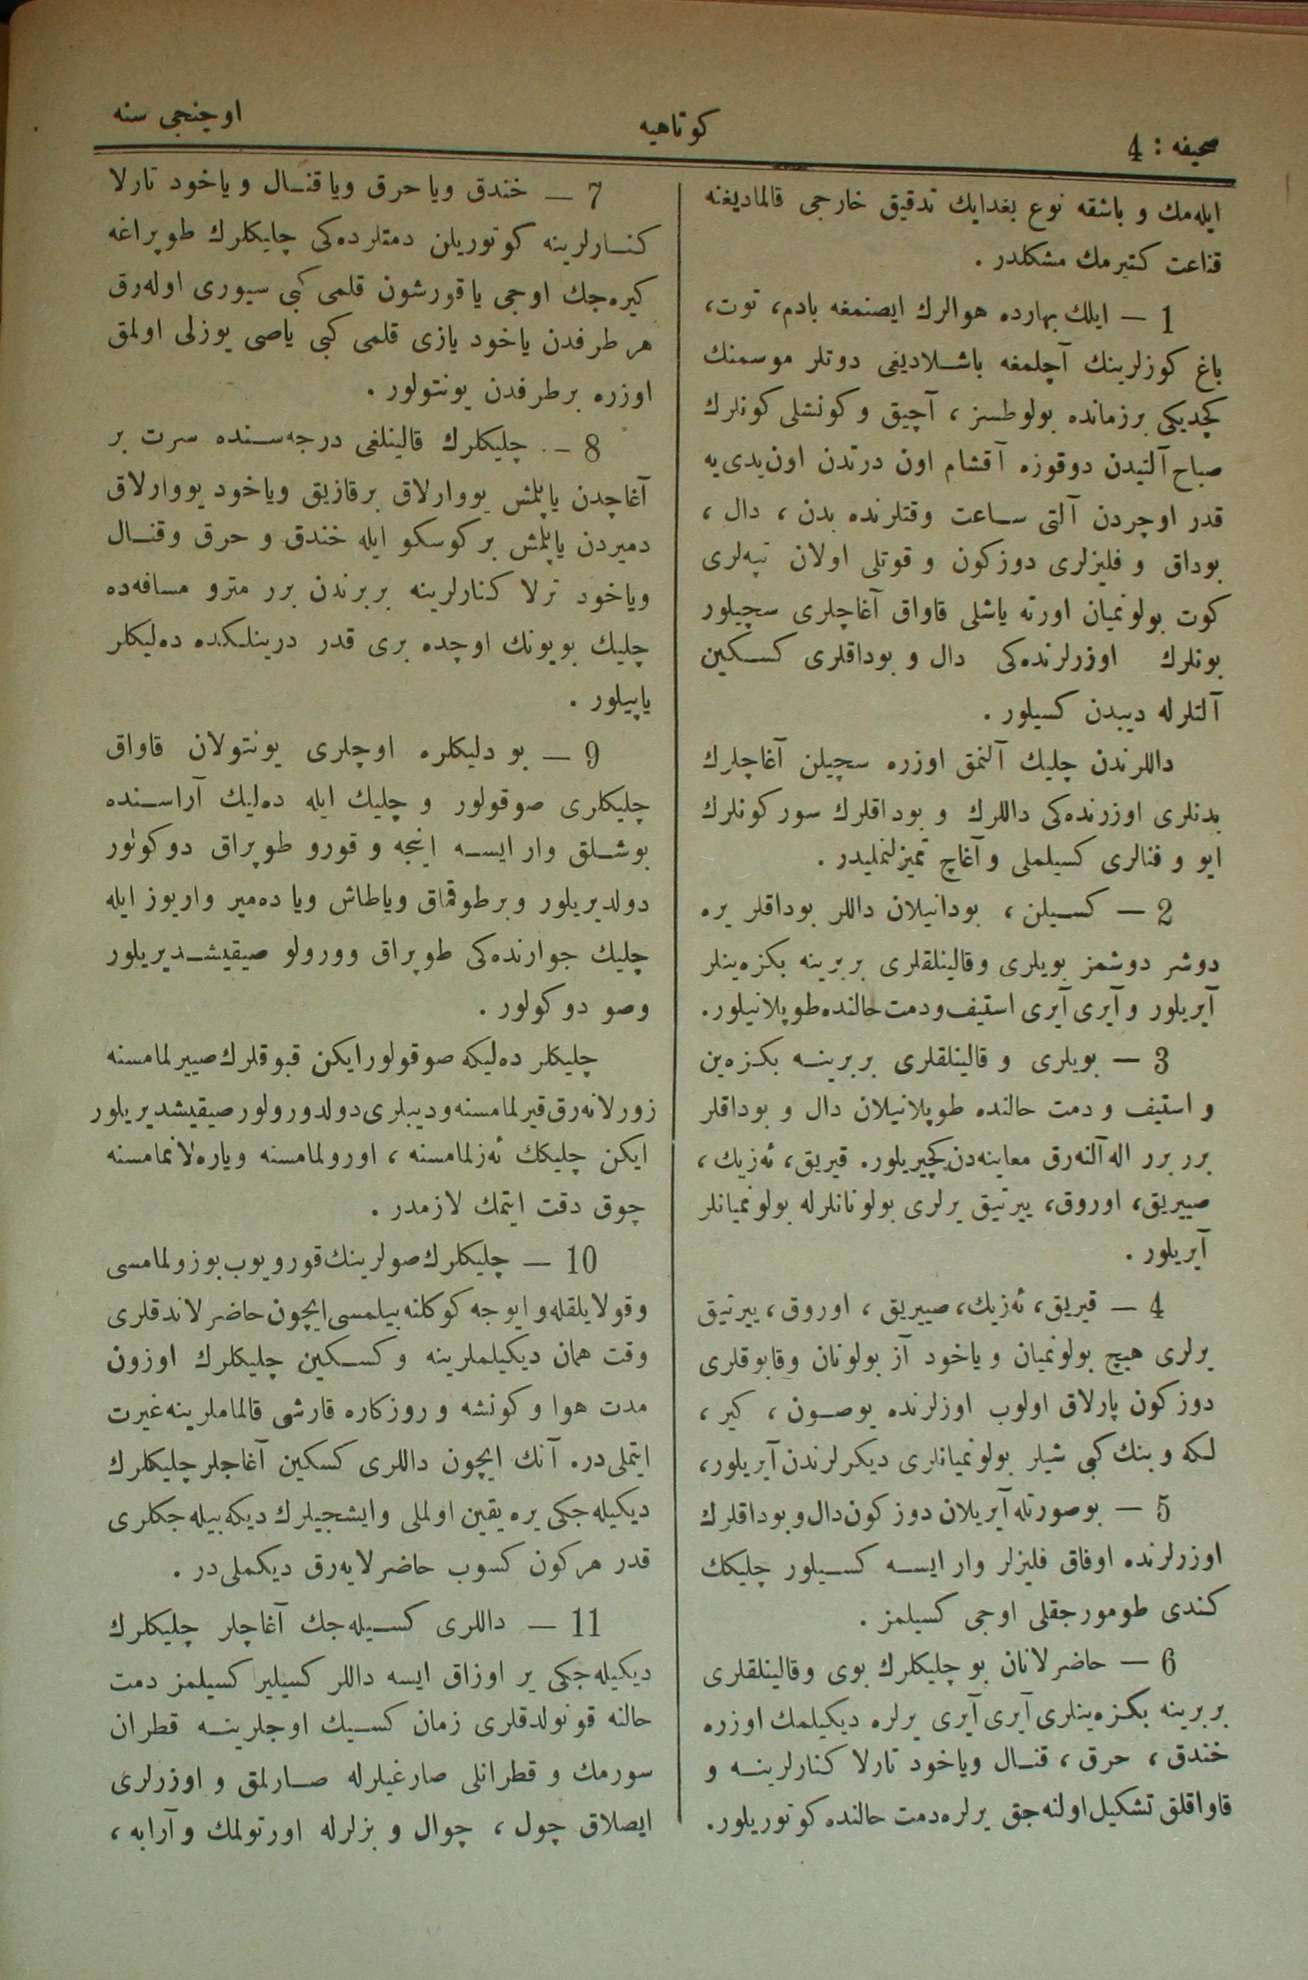 صحيفه : 4
كوتاهيه
اوچنجی سنه
ايله‌مك و باشقه نوع بغدايك تدقيق خارجی قالماديغنه
قناعت كتيرمك مشكلدر .
1 — ايلك بهارده هوالرك ايصنمغه بادم، توت،
باغ كوزلرينك آچلمغه باشـلاديغی دوتلر موسمنك
كچديكی برزمانده بولوطسز ، آچيق و كونشلی كونلرك
صباح آلتيدن دوقوزه آقشام اون درتدن اون‌يدی‌يه
قدر اوچردن آلتی سـاعت وقتلرنده بدن ، دال ،
بوداق و فليزلری دوزكون و قوتلی اولان تپه‌لری
كوت بولونميان اورته ياشلی قاواق آغاچلری سچيلور
بونلرك اوزرلرنده‌كی دال و بوداقلری كسـكين
آلتلرله ديبدن كسيلور .
داللرندن چليك آلنمق اوزره سچيلن آغاچلرك
بدنلری اوزرنده‌كی داللرك و بوداقلرك سوركونلرك
ايو و فنالری كسيلملی و آغاچ تميزلنمليدر .
2 — كسـيلن ، بودانيلان داللر بوداقلر يره
دوشر دوشمز بويلری وقالينلقلری بربرينه بكزه‌ينلر
آيريلور و آيری آيری استيف ودمت حالنده طوپلانيلور.
3 — بويلری و قالينلقلری بربرينـه بكزه‌ين
و استيف و دمت حالنده طوپلانيلان دال و بوداقلر
برر برر اله آلنه‌رق معاينه‌دن كچيريلور. قيريق، ئه‌زيك،
صييريق، اوروق، ييرتيق يرلری بولونانلرله بولونميانلر
آيريلور .
4 — قيريق، ئه‌زيك، صييريق ، اوروق ، ييرتيق
يرلری هيچ بولونميان و ياخود آز بولونان وقابوقلری
دوزكون پارلاق اولوب اوزلرنده يوصـون ، كير ،
لكه و بنك كبی شيلر بولونميانلری ديكرلرندن آيريلور،
5 — بوصورتله آيريلان دوزكون دال و بوداقلرك
اوزرلرنده اوفاق فليزلر وار ايسـه كسـيلور چليكك
كندی طومورجقلی اوجی كسيلمز .
6 — حاضرلانان بو چليكلرك بوی وقالينلقلری
بربرينه بكزه‌ينلری آيری آيری يرلره ديكيلمك اوزره
خندق ، حرق ، قنـال وياخود تارلا كنارلرينـه و
قاواقلق تشكيل اولنه‌جق يرلره دمت حالنده كوتوريلور.
7 — خندق ويا حرق ويا قنـال و ياخود تارلا
كنـارلرينه كوتوريلن دمتلرده‌كی چليكلرك طوپراغه
كيره‌جك اوجی يا قورشون قلمی كبی سيوری اوله‌رق
هر طرفدن ياخود يازی قلمی كبی ياصی يوزلی اولمق
اوزره برطرفدن يونتولور .
8 — چليكلرك قالينلغی درجه‌سـنده سرت بر
آغاچدن ياپلمش يووارلاق برقازيق وياخود يووارلاق
دميردن ياپلمش بر كوسكو ايله خندق و حرق وقنـال
وياخود ترلا كنارلرينه بربرندن برر مترو مسافه‌ده
چليك بويونك اوچده بری قدر درينلـكده ده‌ليكلر
ياپيلور .
9 — بو دليكلره اوچلری يونتولان قاواق
چليكلری صوقولور و چليك ايله ده‌ليك آراسـنده
بوشـلق وار ايسـه اينجه و قورو طوپراق دوكولور
دولديريلور وبرطوقماق وياطاش ويا ده‌مير واريوز ايله
چليك جوارنده‌كی طوپراق وورولو صيقيشـديريلور
وصو دوكولور .
چليكلر ده‌ليكه صوقولورايكن قبوقلرك صييرلمامسنه
زورلانه‌رق قيرلمامسنه وديبلری دولدورولور صيقيشديريلور
ايكن چليكك ئه‌زلمامسنه ، اورولمامسنه وياره‌لانمامسنه
چوق دقت ايتمك لازمدر .
10 — چليكلرك صولرينك قورويوب بوزولمامسی
وقولايلقله و ايوجه كوكلنه بيلمسی ايچون حاضرلاندقلری
وقت همان ديكيلملرينه وكسـكين چليكلرك اوزون
مدت هوا و كونشه و روزكاره قارشی قالماملرينه غيرت
ايتملی‌در. آنك ايچون داللری كسكين آغاجلر چليكلرك
ديكيله‌جكی يره يقين اولملی وايشجيلرك ديكه‌بيله‌جكلری
قدر هركون كسوب حاضرلايه‌رق ديكملی‌در .
11 — داللری كسـيله‌جك آغاچلر چليكلرك
ديكيله‌جكی ير اوزاق ايسه داللر كسيلير كسيلمز دمت
حالنه قونولدقلری زمان كسـيك اوجلرينـه قطران
سورمك و قطرانلی صارغيلرله صـارلمق و اوزرلری
ايصلاق چول ، چوال و بزلرله اورتولمك و آرابه ،